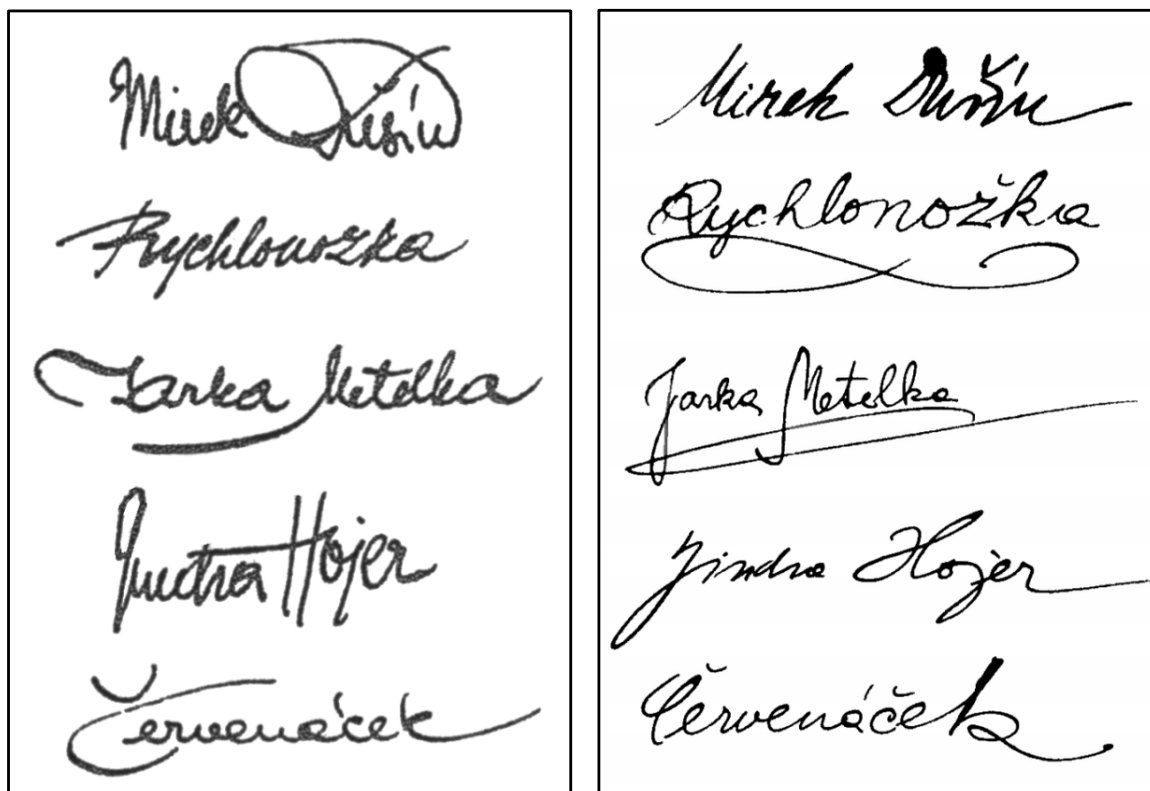 Mirek Dušín
Rychlonožka
Jarka Metelka
Jindra Hojer
Červenáček
Mirek Dušín
Rychlonožka
Jarka Metelka
Jindra Hojer
Červenáček